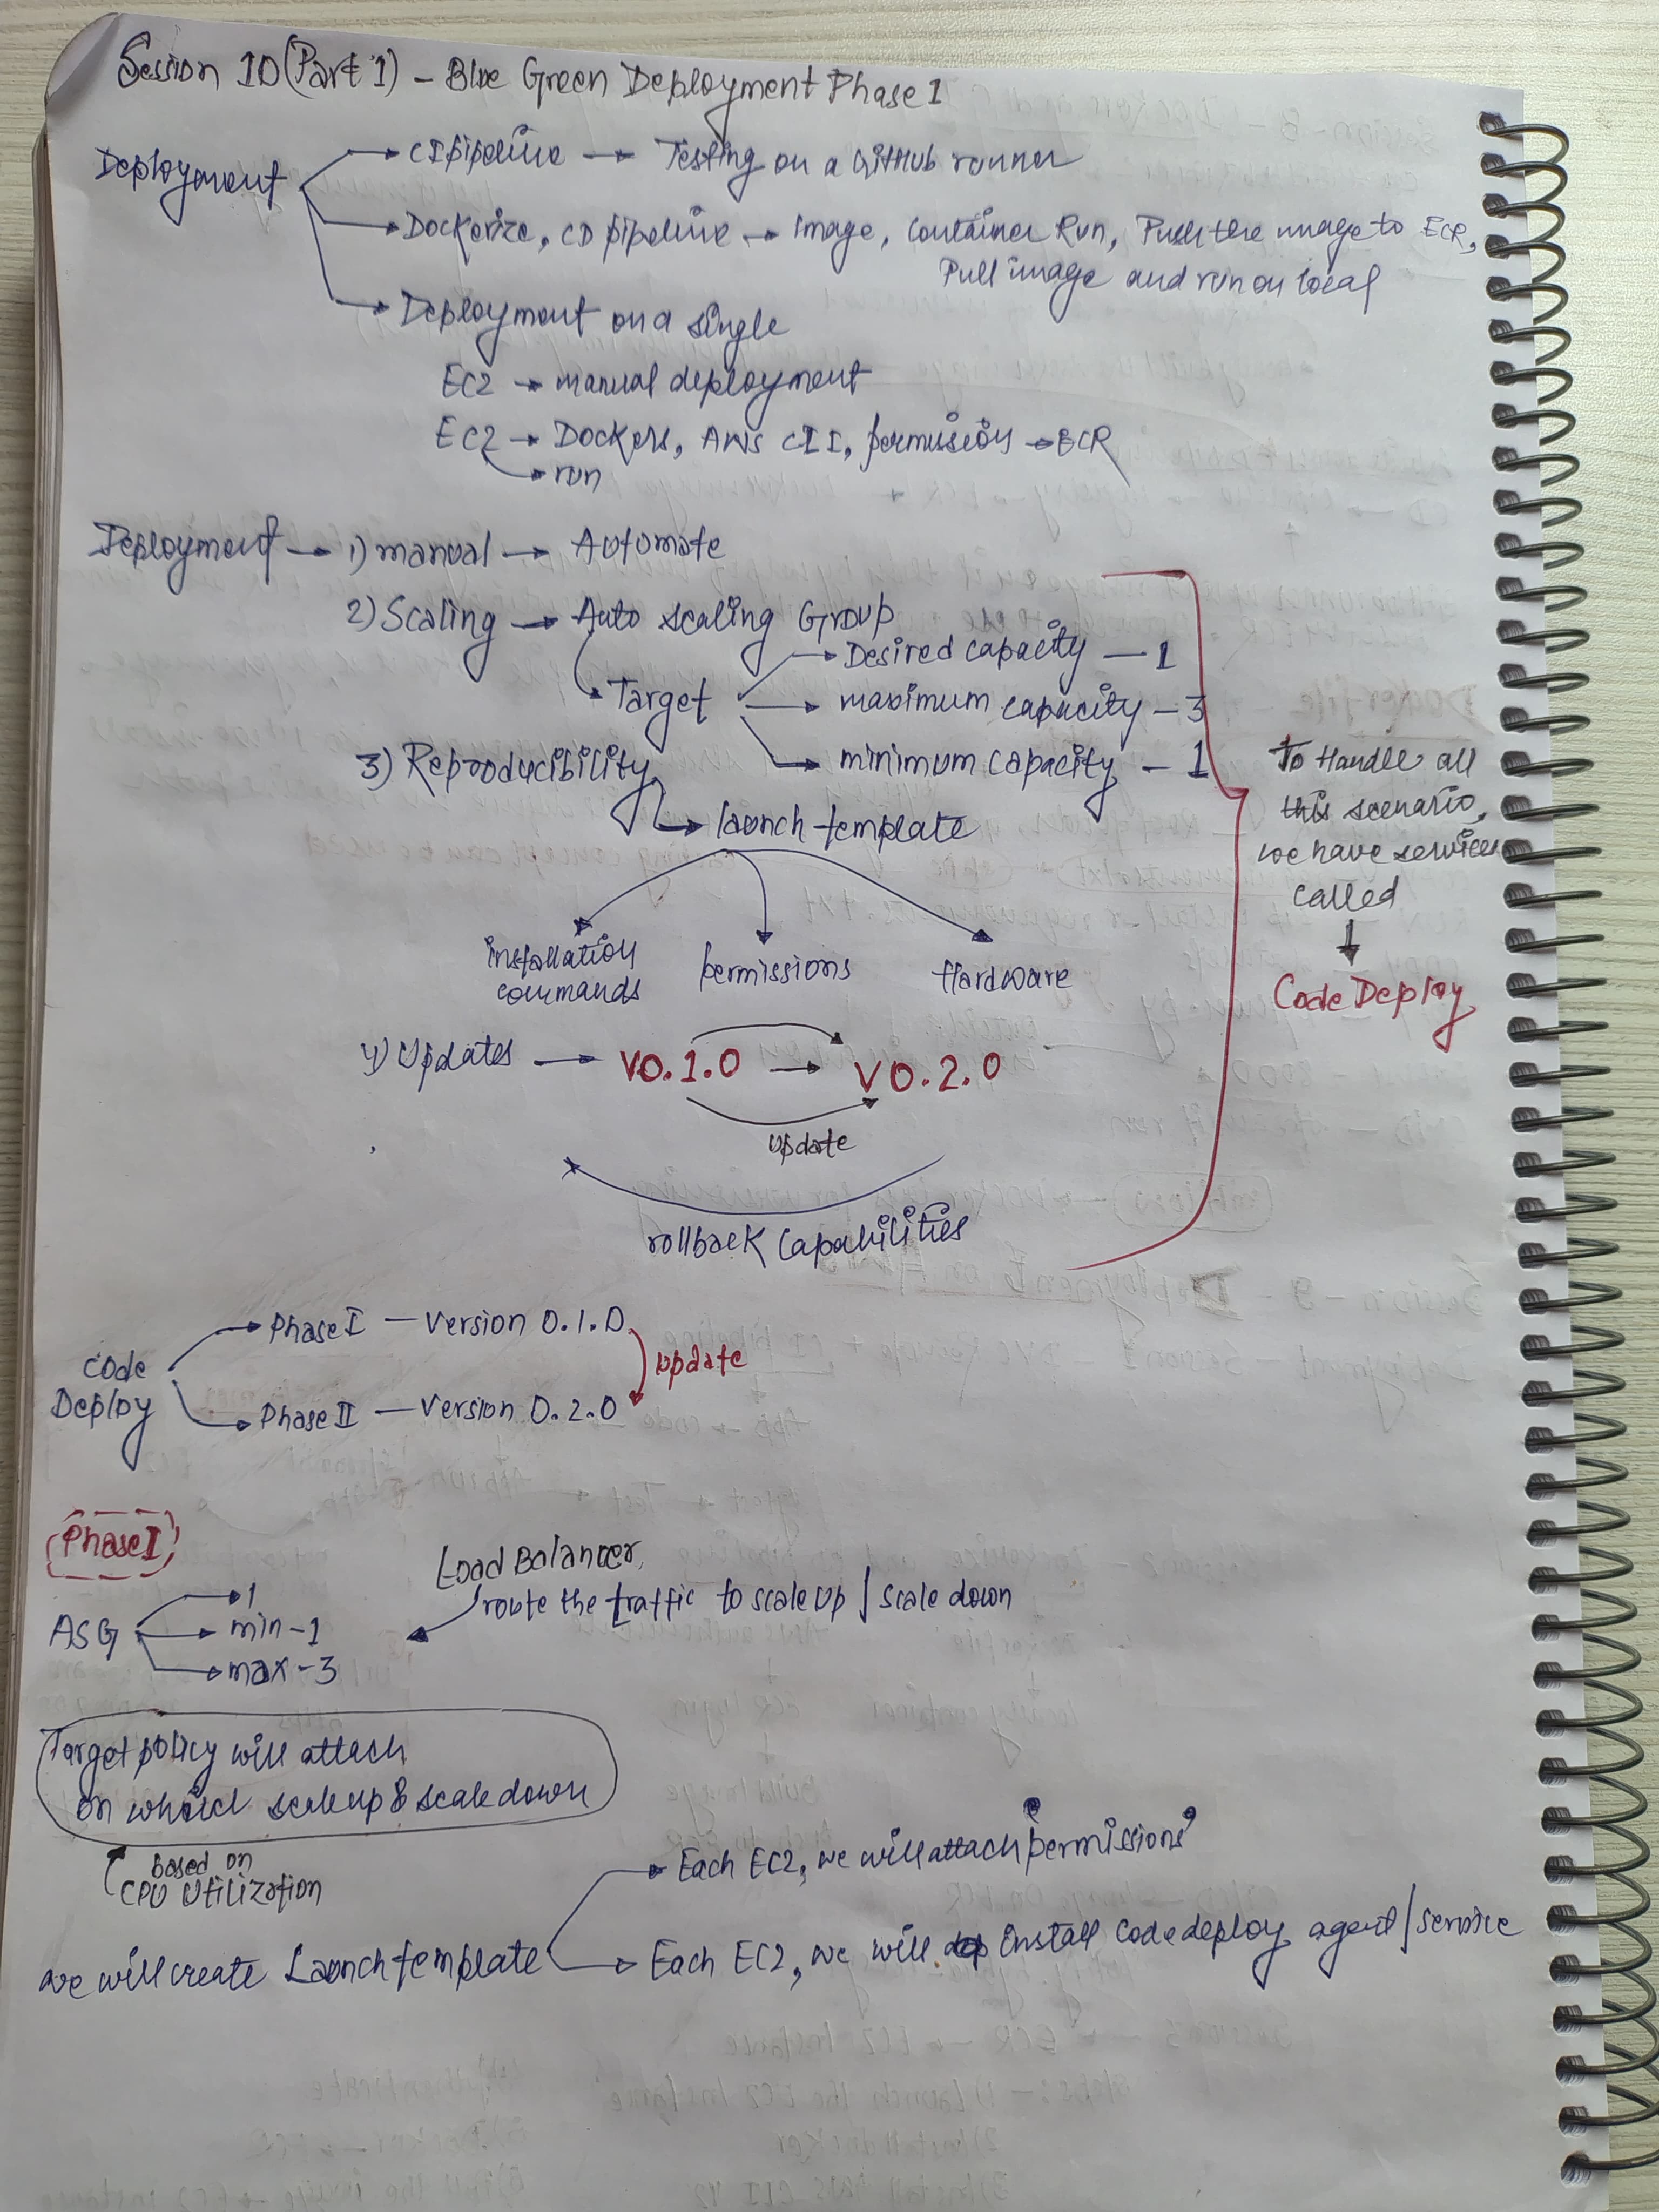 Session 10 (Part 1) - Blue Green Deployment Phase 1
Deployment → CI pipeline → Testing on a GitHub runner
→ Dockerize, CD pipeline → Image, Container Run, Push the image to ECR,
Pull image and run on local
→ Deployment on a single
EC2 → manual deployment
EC2 → Dockers, AWS CLI, permission → ECR
→ run
Deployment → 1) manual → Automate
2) Scaling → Auto scaling Group
→ Desired capacity - 1
Target → maximum capacity - 3
→ minimum capacity - 1
3) Reproducibility
→ launch template
installation commands
permissions
Hardware
To Handle all
this scenario,
we have services
called
↓
Code Deploy
4) Updates → V0.1.0 → V0.2.0
update
rollback capabilities
Code Deploy
→ Phase I - Version 0.1.0
update
→ Phase II - Version 0.2.0
Phase I
Load Balancer,
route the traffic to scale up / scale down
ASG → 1
→ min - 1
→ max - 3
Target policy will attach
on which scaleup & scale down
based on
CPU Utilization
we will create Launch template
→ Each EC2, we will attach permissions
→ Each EC2, we will install codedeploy agent / service